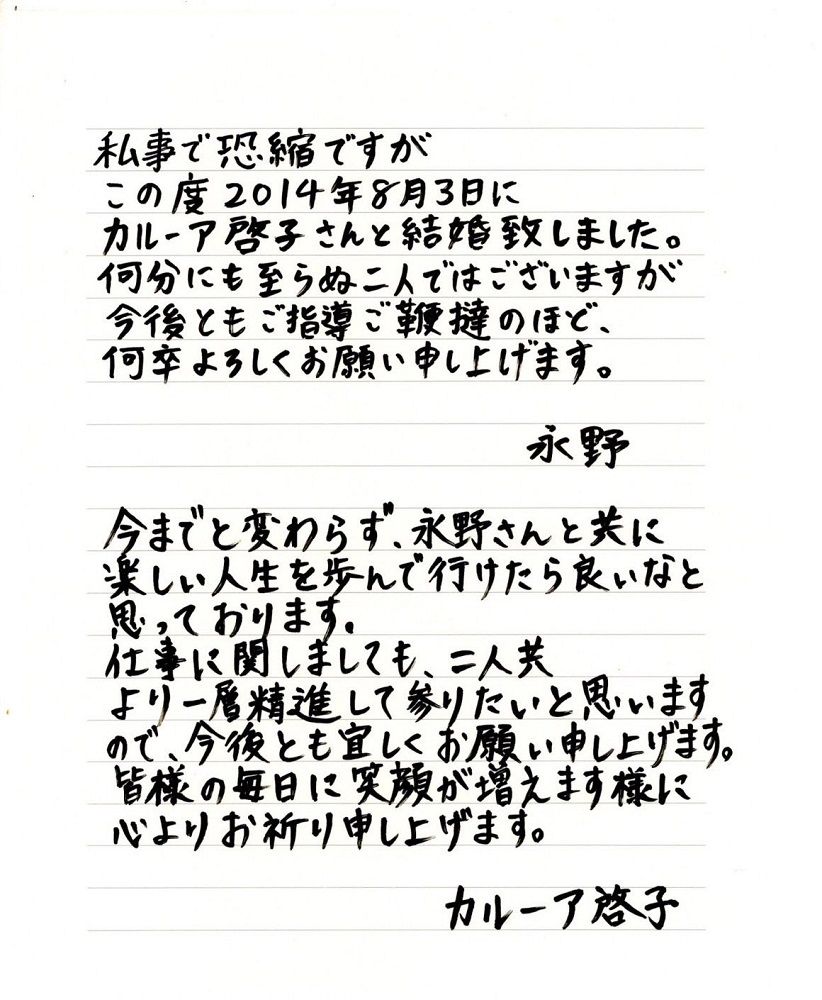 私事で恐縮ですが
この度2014年8月3日に
カルーア啓子さんと結婚致しました。
何分にも至らぬ二人ではございますが
今後ともご指導ご鞭撻のほど、
何卒よろしくお願い申し上げます。
永野
今までと変わらず、永野さんと共に
楽しい人生を歩んで行けたら良いなと
思っております。
仕事に関しましても、二人共
より一層精進して参りたいと思います
ので、今後とも宜しくお願い申し上げます。
皆様の毎日に笑顔が増えます様に
心よりお祈り申し上げます。
カルーア啓子